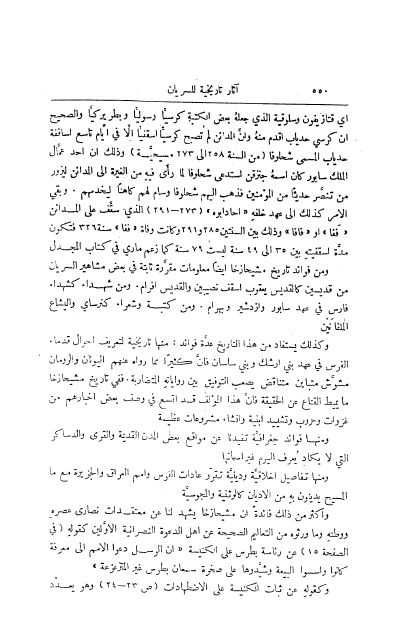 ٥٥٠ آثار تاريخية للسريان
اي قتازيفون وسلوقية الذي جعله بعض الكتبة كرسيًّا رسوليًّا وبطريركيًّا والصحيح
ان كرسي حدياب اقدم منهُ وانَّ المدائن لم تُصبح كرسيًّا اسقفيًّا الَّا في ايَّام تاسع اساقفة
حدياب المسمى شحلوفا (من السنة ٢٥٨ الى ٢٧٣ مسيحيَّة) وذلك ان احد عمَّال
الملك سابور كان اسمهُ جتزقن استدعى شحلوفا لما رأى فيهِ من الغيرة الى المدائن ليزور
من تنصَّر حديثًا من المؤمنين فذهب اليهم شحلوفا وسام لهم كاهنًا ليخدمهم . وبقي
الامر كذلك الى عهد خلفهِ «احادابوه» (٢٧٣–٢٩١) الذي سقَّف على المدائن
« ففا » او « فافا » وذلك بين السنتين ٢٨٥ و٢٩١ وكانت وفاة « ففا » سنة ٣٢٦ فتكون
مدَّة اسقفيتهِ بين ٣٥ الى ٤٩ سنة ليست ٧٩ سنة كما زعم ماري في كتاب المجدل
ومن فوائد تاريخ مشيحازخا ايضًا معلومات مقرَّرة ثابتة في بعض مشاهير السريان
من قديسين كالقديس يعقوب اسقف نصيبين والقديس افرام . ومن شهداء كشهداء
فارس في عهد سابور وازدشير وبهرام . ومن كتبة وشعراء كنرساي واليشاع
الملفانَين
وكذلك يستفاد من هذا التاريخ عدَّة فوائد : منها تاريخية لتعريف احوال قدماء
الفرس في عهد بني ارشك وبني ساسان فانَّ كثيرًا مما رواه عنهم اليونان والرومان
مشوَّش متباين متناقض يصعب التوفيق بين رواياتهِ المتضاربة. ففي تاريخ مشيحازخا
ما يميط القناع عن الحقيقة فانَّ هذا المؤلف قد اتسع في وصف بعض اخبارهم من
غزوات وحروب وتشييد ابنية وانشاء مشروعات عظيمة
ومنها فوائد جغرافيَّة تفيدنا عن مواقع بعض المدن القديمة والقرى والدساكر
التي لا يكاد يُعرف اليوم غير اسمائها
ومنها تفاصيل اخلاقيَّة ودينيَّة تقرّر عادات الفرس وامم العراق والجزيرة مع ما
المسيح يدينون بهِ من الاديان كالوثنية والمجوسيَّة
واكثر من ذلك فائدةً ان مشيحازخا يشهد لنا عن معتقدات نصارى عصره
ووطنهِ وما ورثوه من التعاليم الصحيحة عن اهل الدعوة النصرانية الاوَّلين كقولهِ ( في
الصفحة ١٥ ) عن رئاسة بطرس على الكنيسة « ان الرسل دعوا الامم الى معرفة
كانوا واسسوا البيعة وشيَّدوها على صخرة سمعان بطرس غير المتزعزعة »
وكقولهِ عن ثبات الكنيسة على الاضطهادات ( ص ٢٣–٢٤ ) وهو يعدّد